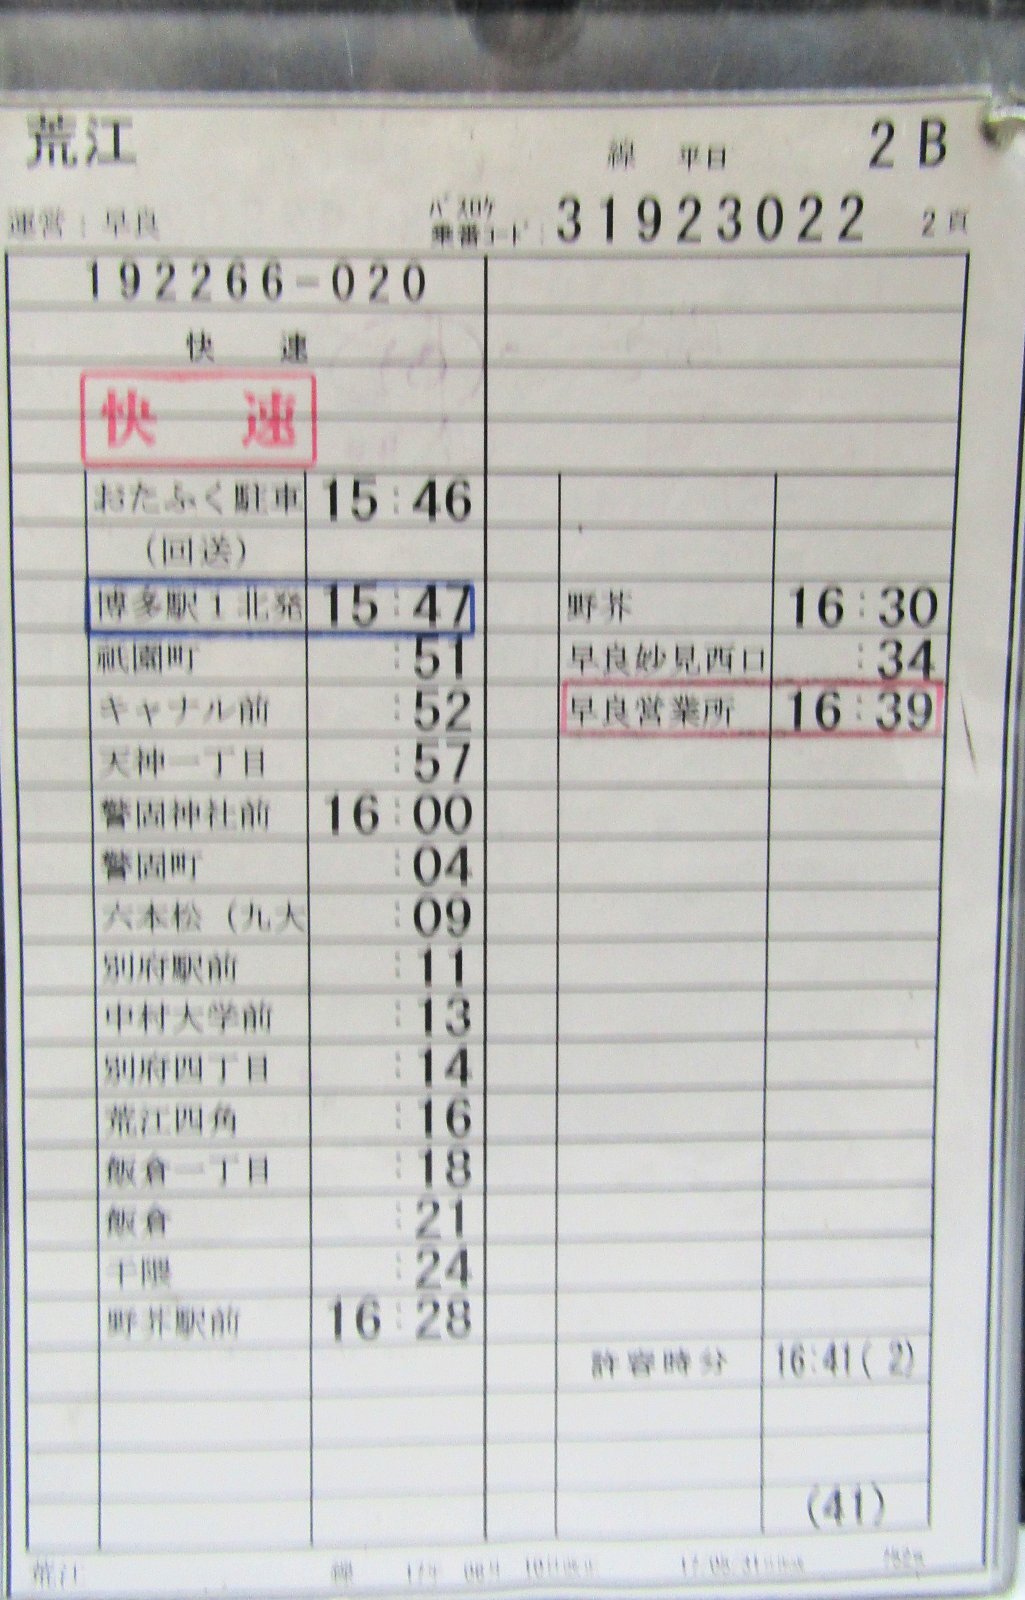 荒江 線 平日 2B
運営：早良 バスロケ乗番コード：31923022 2頁
192266-020
快 速
快 速
おたふく駐車 15:46
(回送)
博多駅1北発 15:47
祇園町 :51
キャナル前 :52
天神一丁目 :57
警固神社前 16:00
警固町 :04
六本松（九大 :09
別府駅前 :11
中村大学前 :13
別府四丁目 :14
荒江四角 :16
飯倉一丁目 :18
飯倉 :21
干隈 :24
野芥駅前 16:28
野芥 16:30
早良妙見西口 :34
早良営業所 16:39
許容時分 16:41( 2)
(41)
荒江 線